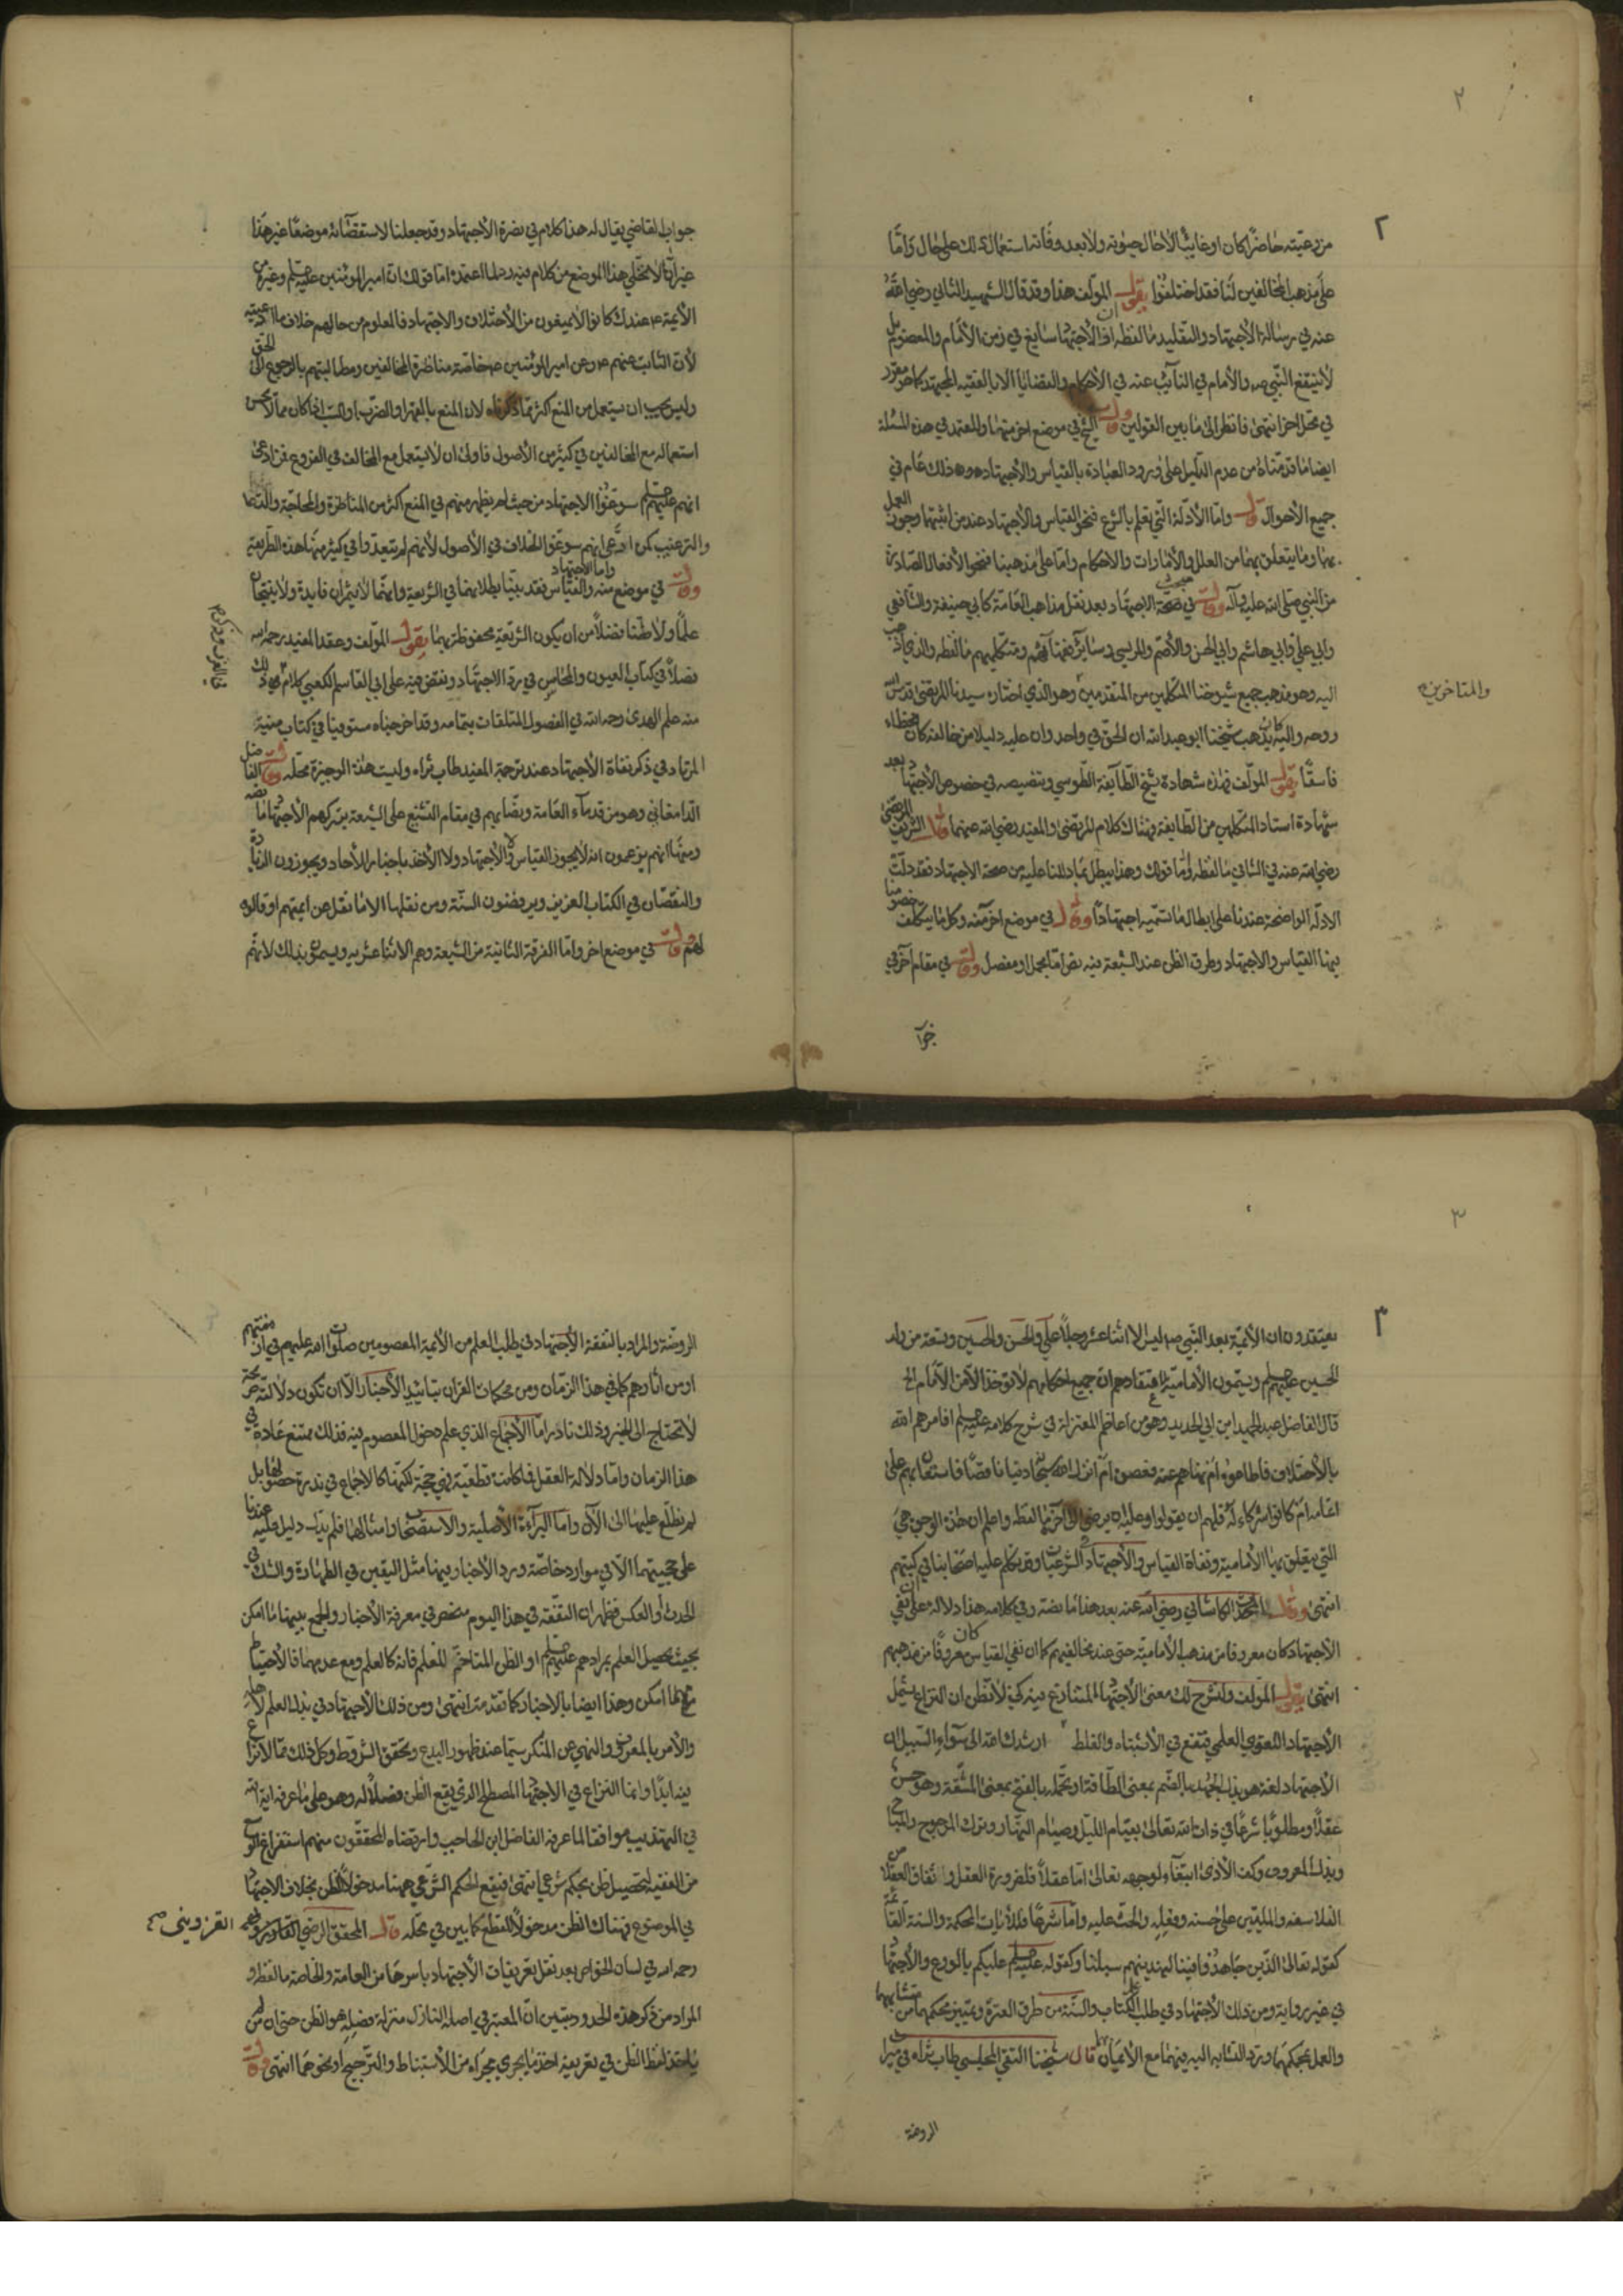 ٢
٢
من رعيته حاضرا كان او غايبا لاحال حيوته ولا بعد وفاته استعمال ذلك على حال واما
على مذهب المخالفين لنا فقد اختلفوا يقول المؤلف هذا وقد قال الشهيد الثاني رضي الله
عنه في رسالة الاجتهاد والتقليد ما لفظه ان الاجتهاد سايغ في زمن الامام والمعصوم بل
لا يتبع النبي ص والامام في النائب عنه في الاحكام والقضايا الا بالفقيه المجتهد كما هو مقرر
في محل اخر انتهى فانظر الى ما بين القولين وقال الشيخ في موضع اخر منها والمعتمد في هذه المسئلة
ايضا ما قدمناه من عدم الدليل على ورود العبادة بالقياس والاجتهاد وذلك عام في
جميع الاحوال وقال واما الادلة التي تعلم بالشرع فنحو القياس والاجتهاد عند من اثبتها وجوب العمل
بها وما يتعلق بها من العلل والامارات والاحكام واما على مذهبنا فنحو الافعال الصادرة
من النبي صلى الله عليه وآله وقال في مبحث صحة الاجتهاد بعد نقل مذاهب العامة كابي حنيفة والشافعي
وابي علي وابي هاشم وابي الحسن والاصم والمريسي وسائر فقهائهم ومتكلميهم ما لفظه والذي اذهب
اليه وهو مذهب جميع شيوخنا المتكلمين من المتقدمين وهو الذي اختاره سيدنا المرتضى قدس الله
والمتاخرين
روحه واليه كان يذهب شيخنا ابو عبد الله ان الحق في واحد وان عليه دليلا من خالفه كان مخطاء
فاسقا يقول المؤلف فهذه شهادة شيخ الطايفة الطوسي وتنصيصه في خصوص الاجتهاد بعد
شهادة استاد المتكلمين من الطايفة فهناك كلام المرتضى والمفيد رضي الله عنهما قال الشريف المرتضى
رضي الله عنه في الشافي ما لفظه واما قولك وهذا يبطل بما دللنا عليه من صحة الاجتهاد فقد دلت
الادلة الواضحة عندنا على ابطال ما تسميه اجتهادا وقال في موضع اخر منه وكل ما يتكلف خصومنا
فيها القياس والاجتهاد وطرق الظن عند الشيعة فيه نص اما مجمل او مفصل وقال في مقام آخر في
جواب
جواب القاضي يقال له هذا كلام في نصرة الاجتهاد وقد جعلنا لاستقصائه موضعا غير هذا
غير انا لا نخلي هذا الموضع من كلام فيه رد لما اعتمده اما قولك ان امير المؤمنين عليه السلم وغيره من
الائمة ع عندك كانوا لا يمنعون من الاختلاف والاجتهاد فالمعلوم من حالهم خلاف ما ادعيته
لان الثابت عنهم ع وعن امير المؤمنين ع خاصة مناظرة المخالفين ومطالبتهم بالرجوع الى الحق
وليس يجب ان يستعمل من المنع اكثر مما ذكرناه لان المنع بالقهر او الضرب او السب اذا كان مما لا يحسن
استعماله مع المخالفين في كثير من الاصول فاولى ان لا يستعمل مع المخالف في الفروع فمن ادعى
انهم عليهم السلم سوغوا الاجتهاد من حيث لم يظهر منهم في المنع اكثر من المناظرة والمحاجة والدعاء
والترغيب كمن ادعى انهم سوغوا الخلاف في الاصول لانهم لم يتعدوا في كثير منها هذه الطريقة
وقال في موضع منه والقياس واما الاجتهاد فقد بينا بطلانهما في الشريعة وانهما لا يثمران فايدة ولا ينتجان
علما ولا ظنا فضلا من ان يكون الشريعة محفوظة بهما يقول المؤلف وعقد المفيد رحمه الله
فضلا في كتاب العيون والمحاسن في رد الاجتهاد ونقض فيه على ابي القاسم الكعبي كلامه في ذلك
منه علم الهدى رحمه الله في الفصول الملتقات بتمامه وقد اخرجناه مستوفيا في كتاب منية
المرتاد في ذكر نفاة الاجتهاد عند ترجمة المفيد طاب ثراه وليست هذه الوجيزة محله وقال الفاضل
الدامغاني وهو من قدماء العامة ونصابهم في مقام التشنيع على الشيعة بتركهم الاجتهاد ما نصه
ومنها انهم يزعمون انه لا يجوز القياس ولا الاجتهاد ولا الاخذ باخبار الاحاد ويجوزون الزيادة
والنقصان في الكتاب العزيز ويرفضون السنة ومن نقلها الا ما نقل عن ائمتهم او قالوه
لهم وقال في موضع اخر واما الفرقة الثانية من الشيعة وهم الاثنا عشرية ويسمون بذلك لانهم
٣
٣
يعتقدون ان الائمة بعد النبي ص ليس الا اثنا عشر رجلا علي والحسن والحسين وتسعة من ولد
الحسين عليهم السلم ويسمون الامامية لاعتقادهم ان جميع احكامهم لا توخذ الا من الامام الخ
قال الفاضل عبد الحميد ابن ابي الحديد وهو من اعاظم المعتزلة في شرح كلامه عليه السلم افامرهم الله
بالاختلاف فاطاعوه ام نهاهم عنه فعصوه ام انزل الله سبحانه دينا ناقصا فاستعان بهم على
اتمامه ام كانوا شركاء له فلهم ان يقولوا وعليه ان يرضى الى اخره ما لفظه واعلم ان هذه الوجوه هي
التي يتعلق بها الامامية ونفاة القياس والاجتهاد في الشرعيات وقد تكلم عليها اصحابنا في كتبهم
انتهى وقال المحدث الكاشاني رضي الله عنه بعد هذا ما نصه وفي كلامه هذا دلالة على ان نفي
الاجتهاد كان معروفا من مذهب الامامية حتى عند مخالفيهم كما ان نفي القياس كان معروفا من مذهبهم
انتهى يقول المؤلف ولنشرح لك معنى الاجتهاد المتنازع فيه كي لا تظن ان النزاع يشمل
الاجتهاد اللغوي العلمي فتقع في الاشتباه والغلط ارشدك الله الى سواء السبيل ان
الاجتهاد لغة هو بذل الجهد بالضم بمعنى الطاقة او تحمله بالفتح بمعنى المشقة وهو حسن
عقلا ومطلوبا شرعا في ذات الله تعالى بقيام الليل وصيام النهار وترك المرجوح والمباح
وبذل المعروف وكف الاذى ابتغاء لوجهه تعالى اما عقلا فلضرورة العقل واتفاق العقلاء من
الفلاسفة والمليين على حسنه وفعله والحث عليه واما شرعا فللايات المحكمة والسنة القائمة
كقوله تعالى الذين جاهدوا فينا لنهدينهم سبلنا وكقوله عليه السلم عليكم بالورع والاجتهاد
في غير رواية ومن ذلك الاجتهاد في طلب علم الكتاب والسنة من طرق العترة وتمييز محكمهما من متشابههما
والعمل بمحكمهما ورد المتشابه اليه فيهما مع الامكان قال شيخنا التقي المجلسي طاب ثراه في شرح
الروضة
الروضة والمراد بالتفقه الاجتهاد في طلب العلم من الائمة المعصومين صلوات الله عليهم في ازمنتهم
او من اثارهم كما في هذا الزمان ومن محكمات القرآن بتاييد الاخبار الا ان تكون دلالته صريحة
لا تحتاج الى الخبر وذلك نادر اما الاجماع الذي علم دخول المعصوم فيه فذلك ممتنع عادة في
هذا الزمان واما دلالة العقل فما كانت قطعية فهي حجة لكنها كالاجماع في ندرة حصولها بل
لم نطلع عليها الى الآن واما البرآءة الاصلية والاستصحاب وامثالهما فلم يدل دليل عليه عندنا
على حجيتهما الا في موارد خاصة ورد الاخبار فيها مثل اليقين في الطهارة والشك في
الحدث او العكس فظهر ان التفقه في هذا اليوم منحصر في معرفة الاخبار والجمع بينها ما امكن
بحيث يحصل العلم بمرادهم عليهم السلم او الظن المتاخم للعلم فانه كالعلم ومع عدمهما فالاحتياط
مهما امكن وهذا ايضا بالاخبار كما تقدمت انتهى ومن ذلك الاجتهاد في بذل العلم لاهله
والامر بالمعروف والنهي عن المنكر سيما عند ظهور البدع وتحقق الشروط وكل ذلك مما لا نزاع
فيه ابدا وانما النزاع في الاجتهاد المصطلح الذي يقع الظن فصلا له وهو على ما عرفه اية الله
في التهذيب موافقا لما عرفه الفاضل ابن الحاجب وارتضاه المحققون منهم استفراغ الوسع
من الفقيه لتحصيل ظن بحكم شرعي انتهى فيقع الحكم الشرعي ههنا مدخولا للظن بخلاف الاجتهاد
في الموضوع فهناك الظن مدخولا للقطع كما بين في محله قال المحقق الرضي القزويني
رحمه الله في لسان الخواص بعد نقل تعريفات الاجتهاد باسرها من العامة والخاصة ما لفظه و
المراد من ذكر هذه الحدود تبيين ان المعتبر في اصله النازل منزلة فصله هو الظن حتى ان من لم
ياخذ لفظ الظن في تعريفه اخذ ما يجري مجراه من الاستنباط والترجيح او نحوهما انتهى وقال